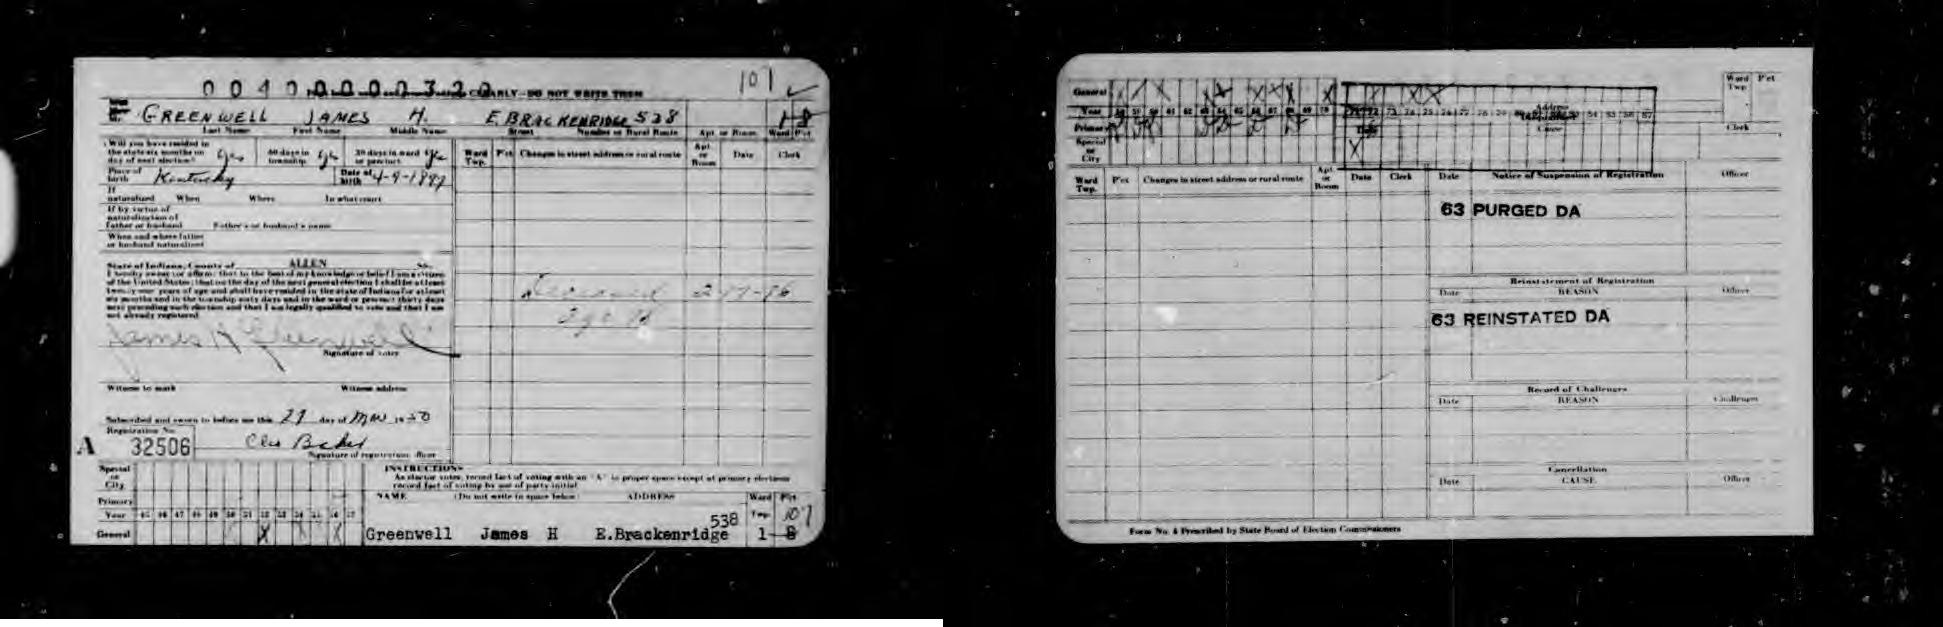 107
0 0 4 0 0 0 0 0 3 2 0
CLEARLY—DO NOT WRITE THEM
GREENWELL JAMES H. E BRACKENRIDGE 538 1 8
Last Name First Name Middle Name Street Number or Rural Route Apt. or Room Ward Pct
Will you have resided in the state six months on day of next election? yes 60 days in township yes 30 days in ward or precinct yes
Place of birth Kentucky Date of birth 4-9-1897
If naturalized When Where In what court
If by virtue of naturalization of father or husband Father's or husband's name
When and where father or husband naturalized
State of Indiana, County of ALLEN ss.
I hereby swear (or affirm) that to the best of my knowledge or belief I am a citizen
of the United States; that on the day of the next general election I shall be at least
twenty-one years of age and shall have resided in the state of Indiana for at least
six months and in the township sixty days and in the ward or precinct thirty days
next preceding such election and that I am legally qualified to vote and that I am
not already registered.
James H Greenwell
Signature of voter
Witness to mark Witness address
Subscribed and sworn to before me this 27 day of Mar 1950
Registration No.
A 32506
Signature of registration officer
Ward Twp. Pct Changes in street address or rural route Apt or Room Date Clerk
Deceased 2-17-76
INSTRUCTIONS
As elector votes, record fact of voting with an "X" in proper space except at primary elections
record fact of voting by use of party initial
Special or City
Primary
Year 45 46 47 48 49 50 51 52 53 54 55 56 57
General X X X X
NAME (Do not write in space below) ADDRESS Ward Twp. Pct
107
538
Greenwell James H E.Brackenridge 1 8
General
Year
Primary
Special or City
Address
Cause
Ward Twp Pct
Clerk
Ward Twp. Pct Changes in street address or rural route Apt or Room Date Clerk
Date Notice of Suspension of Registration Officer
63 PURGED DA
Reinstatement of Registration
Date REASON Officer
63 REINSTATED DA
Record of Challenges
Date REASON Challenger
Cancellation
Date CAUSE Officer
Form No. 4 Prescribed by State Board of Election Commissioners